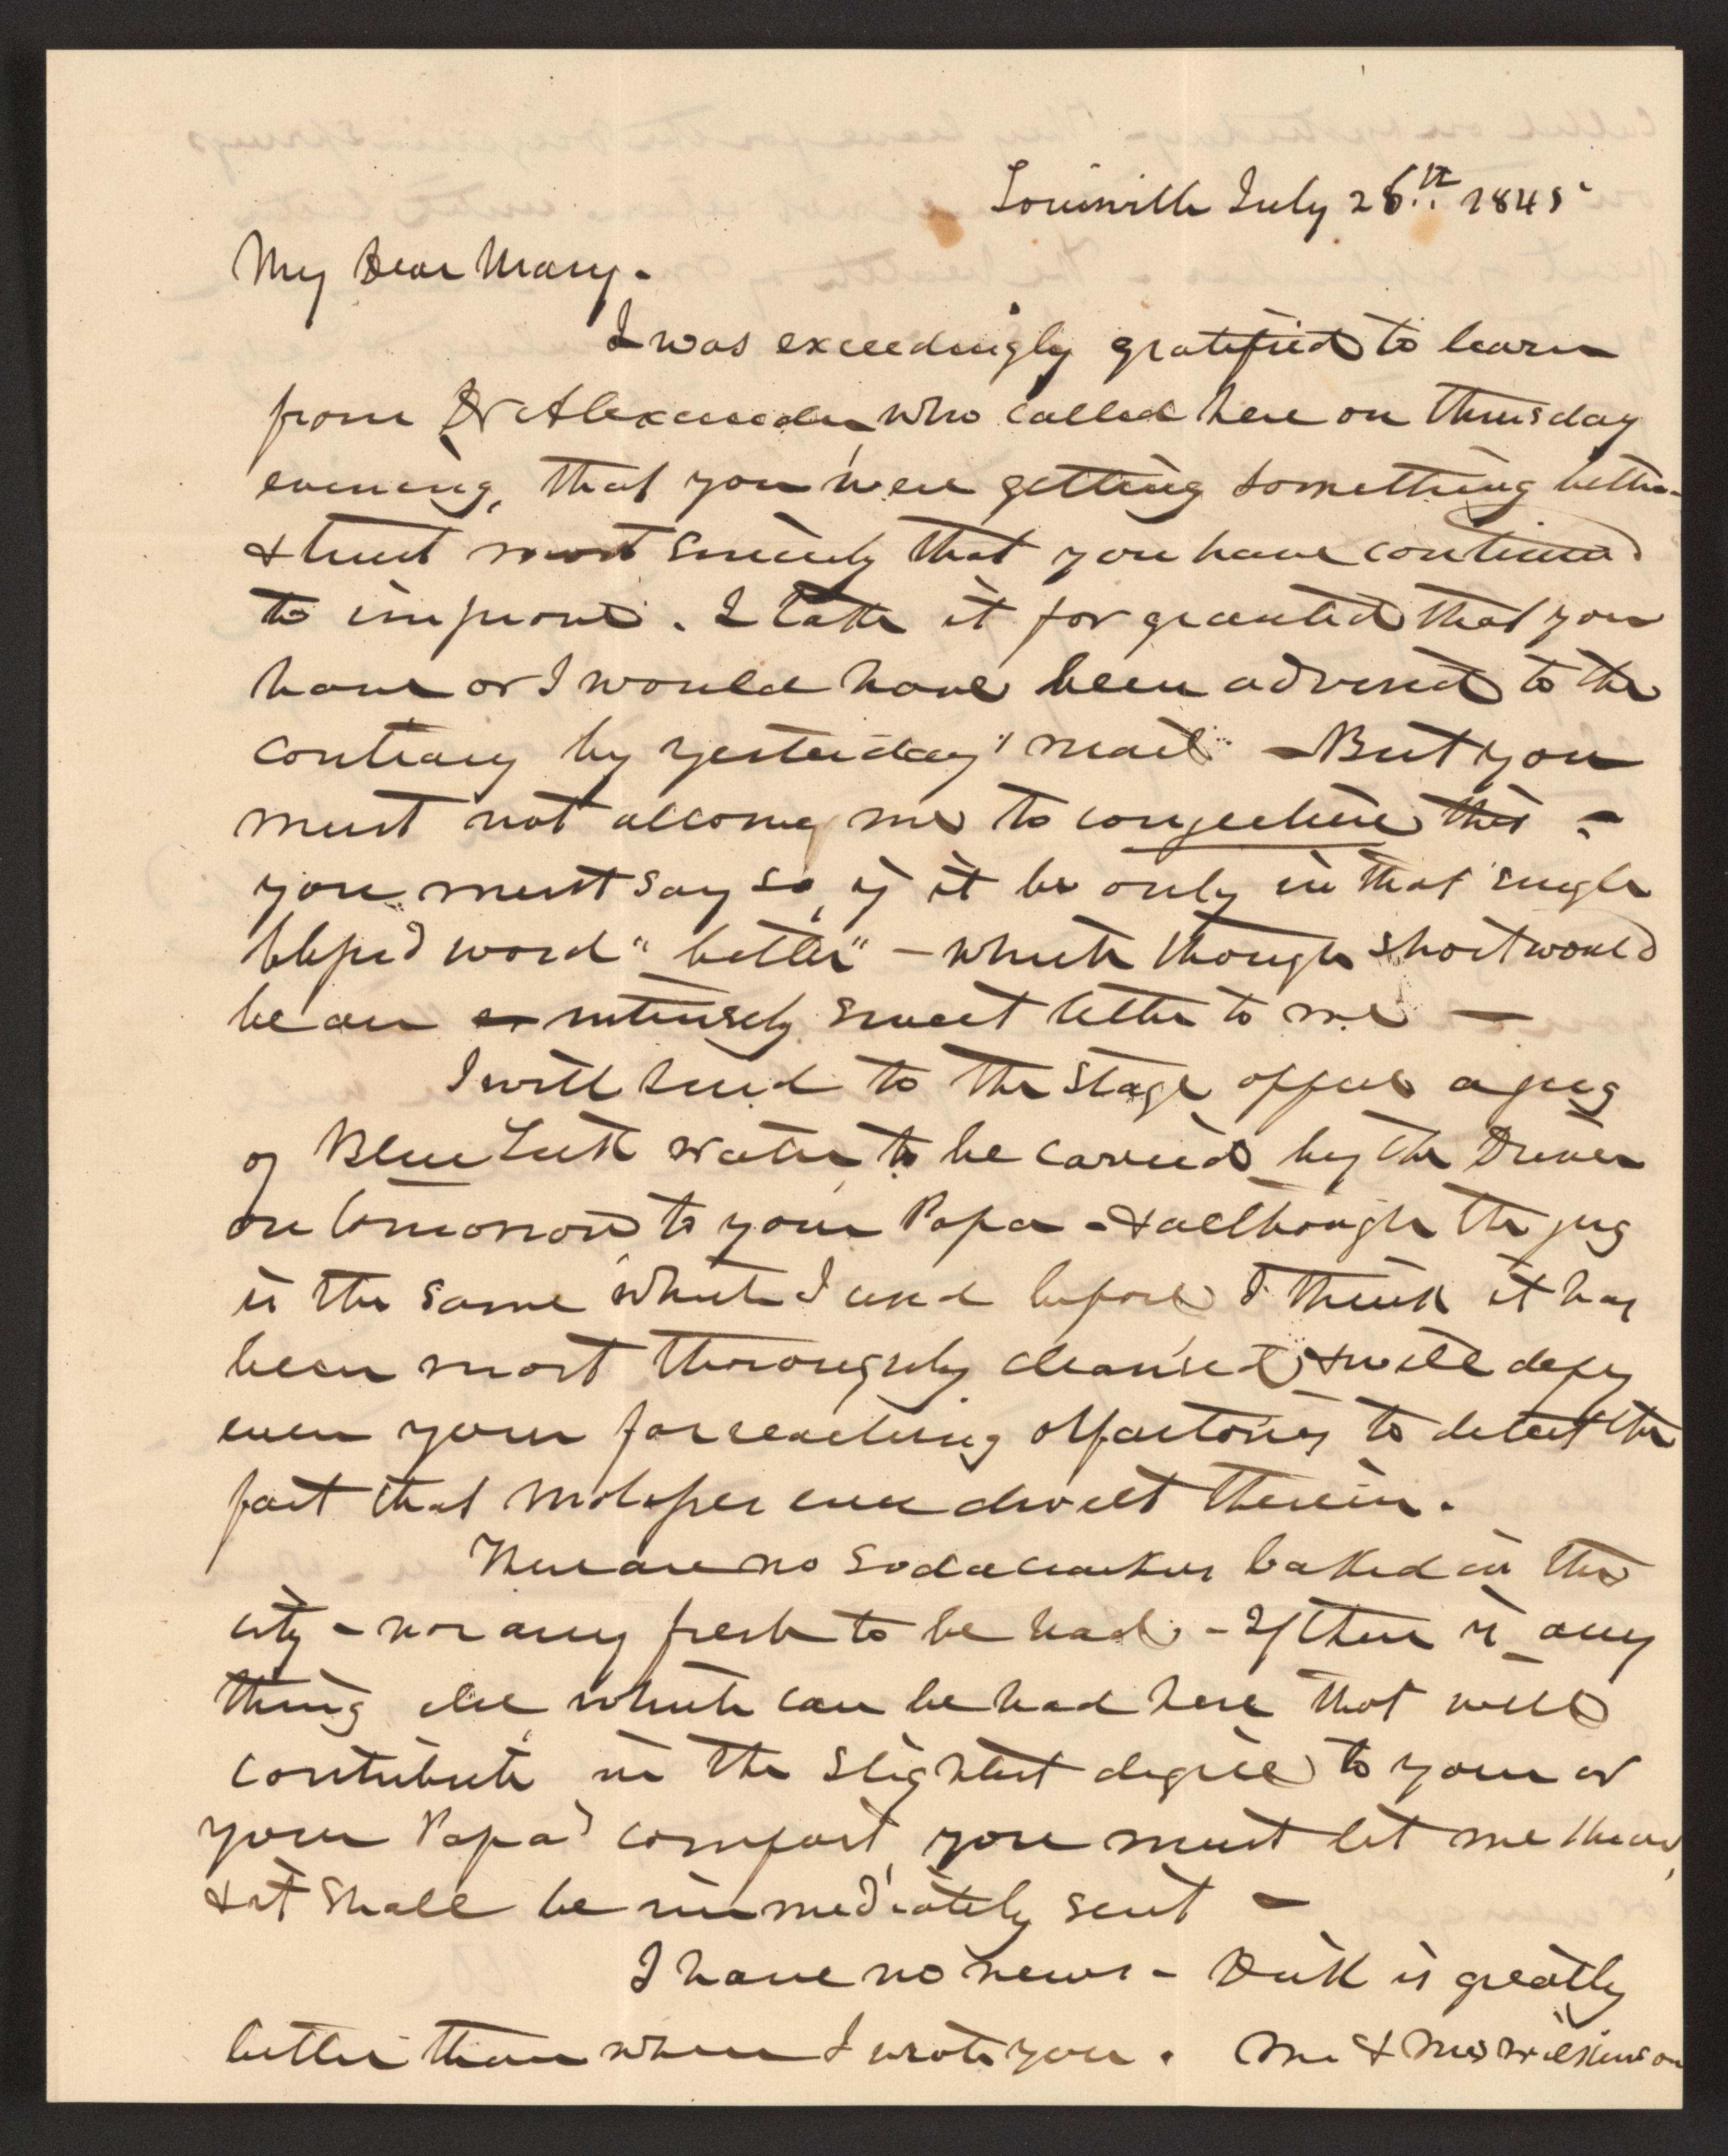 Louisville July 26th. 1845
My Dear Mary.
I was exceedingly gratified to learn
from Dr Alexander, who called here on Thursday
evening, that you were getting something better
& trust most sincerely that you have continued
to improve. I take it for granted that you
have or I would have been advised to the
contrary by yesterday's mail - But you
must not allow me to conjecture this -
you must say so, if it be only in that single
blessed word "better" - which though short would
be an intensely sweet letter to me -
I will send to the Stage office a jug
of Blue Lick water, to be carried by the Driver
on tomorrow to your Papa - & although the jug
is the same which I used before I think it has
been most thoroughly cleansed & will defy
even your far reaching olfactories to detect the
fact that Molasses ever dwelt therein.
There are no Soda crackers baked in this
city - nor any fresh to be had - If there is any
thing else, which can be had here that will
contribute in the slightest degree to your or
your Papa's comfort, you must let me know,
& it shall be immediately sent -
I have no news - Dick is greatly
better than when I wrote you. Mr & Mrs Wilkinson